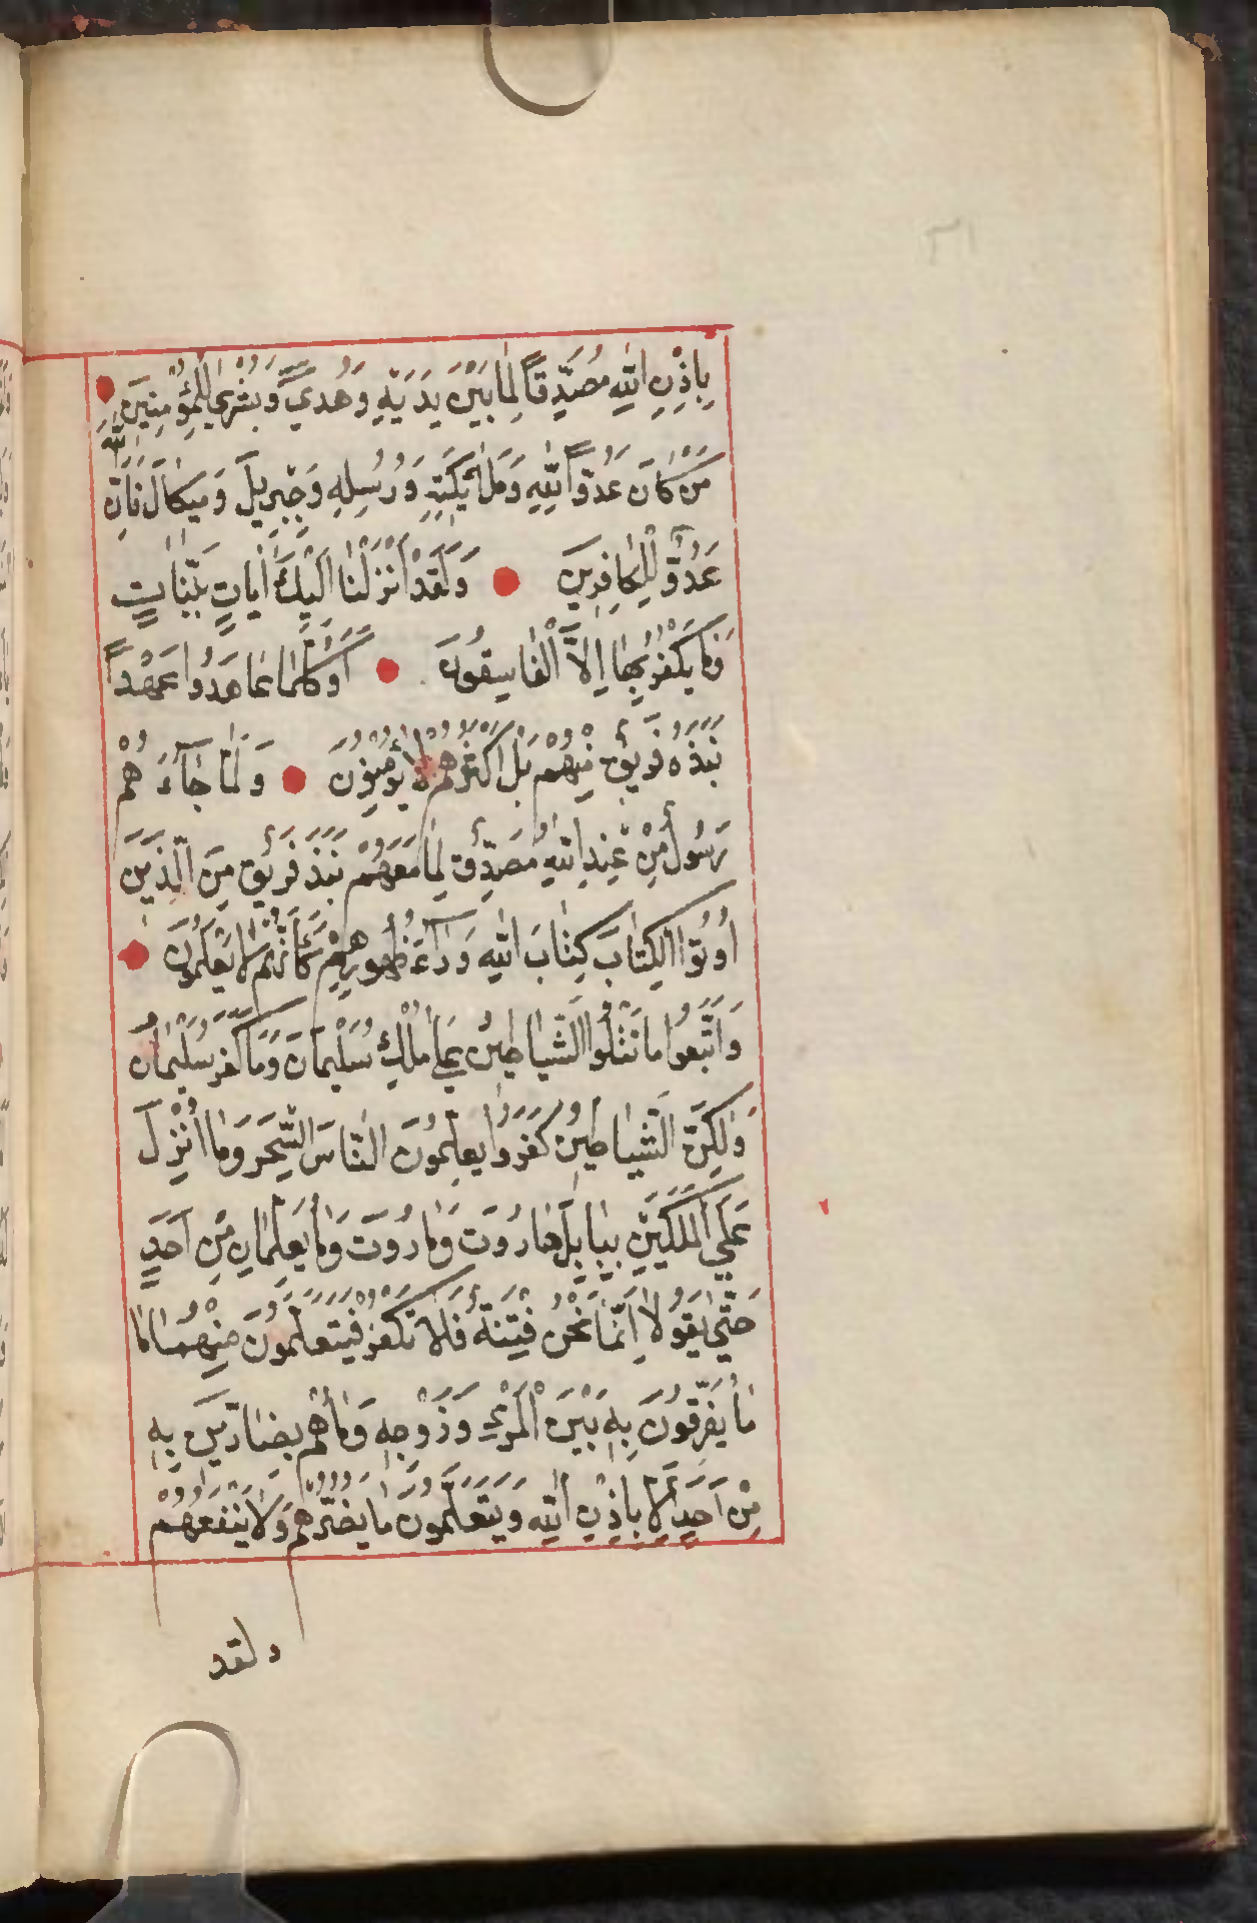 ٣١
بِاِذْنِ اللّٰهِ مُصَدِّقًا لِمَا بَيْنَ يَدَيْهِ وَهُدًي وَبُشْرٰي لِلْمُؤْمِنِينَ
مَنْ كَانَ عَدُوًّا لِلّٰهِ وَمَلٰئِكَتِهِ وَرُسُلِهِ وَجِبْرِيلَ وَمِيكَالَ فَاِنَّ اللّٰهَ
عَدُوٌّ لِلْكَافِرِينَ وَلَقَدْ اَنْزَلْنَا اِلَيْكَ اٰيَاتٍ بَيِّنَاتٍ
وَمَا يَكْفُرُ بِهَا اِلَّا الْفَاسِقُونَ اَوَكُلَّمَا عَاهَدُوا عَهْدًا
نَبَذَهُ فَرِيقٌ مِنْهُمْ بَلْ اَكْثَرُهُمْ لَا يُؤْمِنُونَ وَلَمَّا جَآءَهُمْ
رَسُولٌ مِنْ عِنْدِ اللّٰهِ مُصَدِّقٌ لِمَا مَعَهُمْ نَبَذَ فَرِيقٌ مِنَ الَّذِينَ
اُوتُوا الْكِتَابَ كِتَابَ اللّٰهِ وَرَآءَ ظُهُورِهِمْ كَاَنَّهُمْ لَا يَعْلَمُونَ
وَاتَّبَعُوا مَا تَتْلُوا الشَّيَاطِينُ عَلٰي مُلْكِ سُلَيْمَانَ وَمَا كَفَرَ سُلَيْمَانُ
وَلٰكِنَّ الشَّيَاطِينَ كَفَرُوا يُعَلِّمُونَ النَّاسَ السِّحْرَ وَمَا اُنْزِلَ
عَلَي الْمَلَكَيْنِ بِبَابِلَ هَارُوتَ وَمَارُوتَ وَمَا يُعَلِّمَانِ مِنْ اَحَدٍ
حَتّٰي يَقُولَا اِنَّمَا نَحْنُ فِتْنَةٌ فَلَا تَكْفُرْ فَيَتَعَلَّمُونَ مِنْهُمَا مَا
مَا يُفَرِّقُونَ بِهِ بَيْنَ الْمَرْءِ وَزَوْجِهِ وَمَا هُمْ بِضَارِّينَ بِهِ
مِنْ اَحَدٍ اِلَّا بِاِذْنِ اللّٰهِ وَيَتَعَلَّمُونَ مَا يَضُرُّهُمْ وَلَا يَنْفَعُهُمْ
ولقد